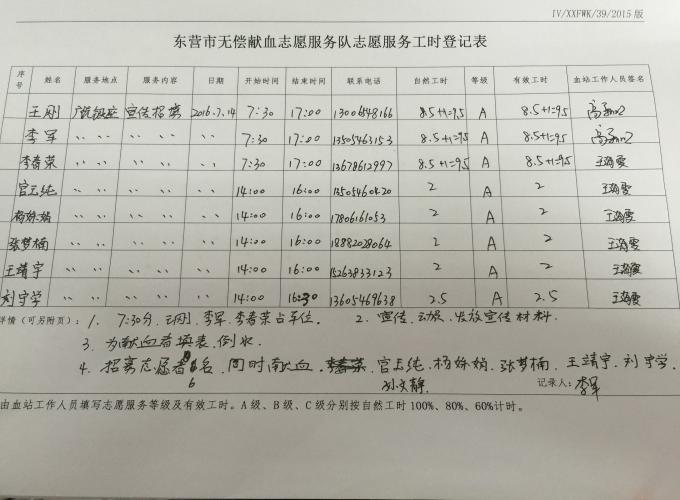 IV/XXFWK/39/2015版
东营市无偿献血志愿服务队志愿服务工时登记表
序号 姓名 服务地点 服务内容 日期 开始时间 结束时间 联系电话 自然工时 等级 有效工时 血站工作人员签名
王刚 宣传招募 2016.7.14 7:30 17:00 13006548166 8.5+1=9.5 A 8.5+1=9.5
李军 〃 〃 〃 〃 〃 〃 7:30 17:00 13505463153 8.5+1=9.5 A 8.5+1=9.5
李春荣 〃 〃 〃 〃 〃 〃 7:30 17:00 13678612997 8.5+1=9.5 A 8.5+1=9.5 王海雯
官云纯 〃 〃 〃 〃 〃 〃 14:00 16:00 13505460420 2 A 2 王海雯
杨姝娟 〃 〃 〃 〃 〃 〃 14:00 16:00 17806161053 2 A 2 王海雯
张梦楠 〃 〃 〃 〃 〃 〃 14:00 16:00 18882028064 2 A 2 王海雯
王靖宇 〃 〃 〃 〃 〃 〃 14:00 16:00 15263833123 2 A 2 王海雯
刘宇学 〃 〃 〃 〃 〃 〃 14:00 16:30 13605469638 2.5 A 2.5 王海雯
详情(可另附页): 1、7:30分,王刚、李军、李春荣占车位。 2、宣传、动员、发放宣传材料.
3、为献血者填表、倒水.
4、招募志愿者6名,同时献血. 官云纯、杨姝娟、张梦楠、王靖宇、刘宇学、
孙文静. 记录人:李军
由血站工作人员填写志愿服务等级及有效工时。A级、B级、C级分别按自然工时100%、80%、60%计时。